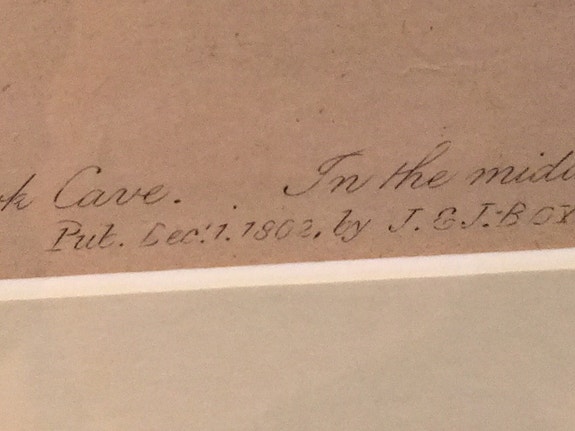 k Cave. In the midd
Pub. Dec.1.1802, by J. & J. BOY